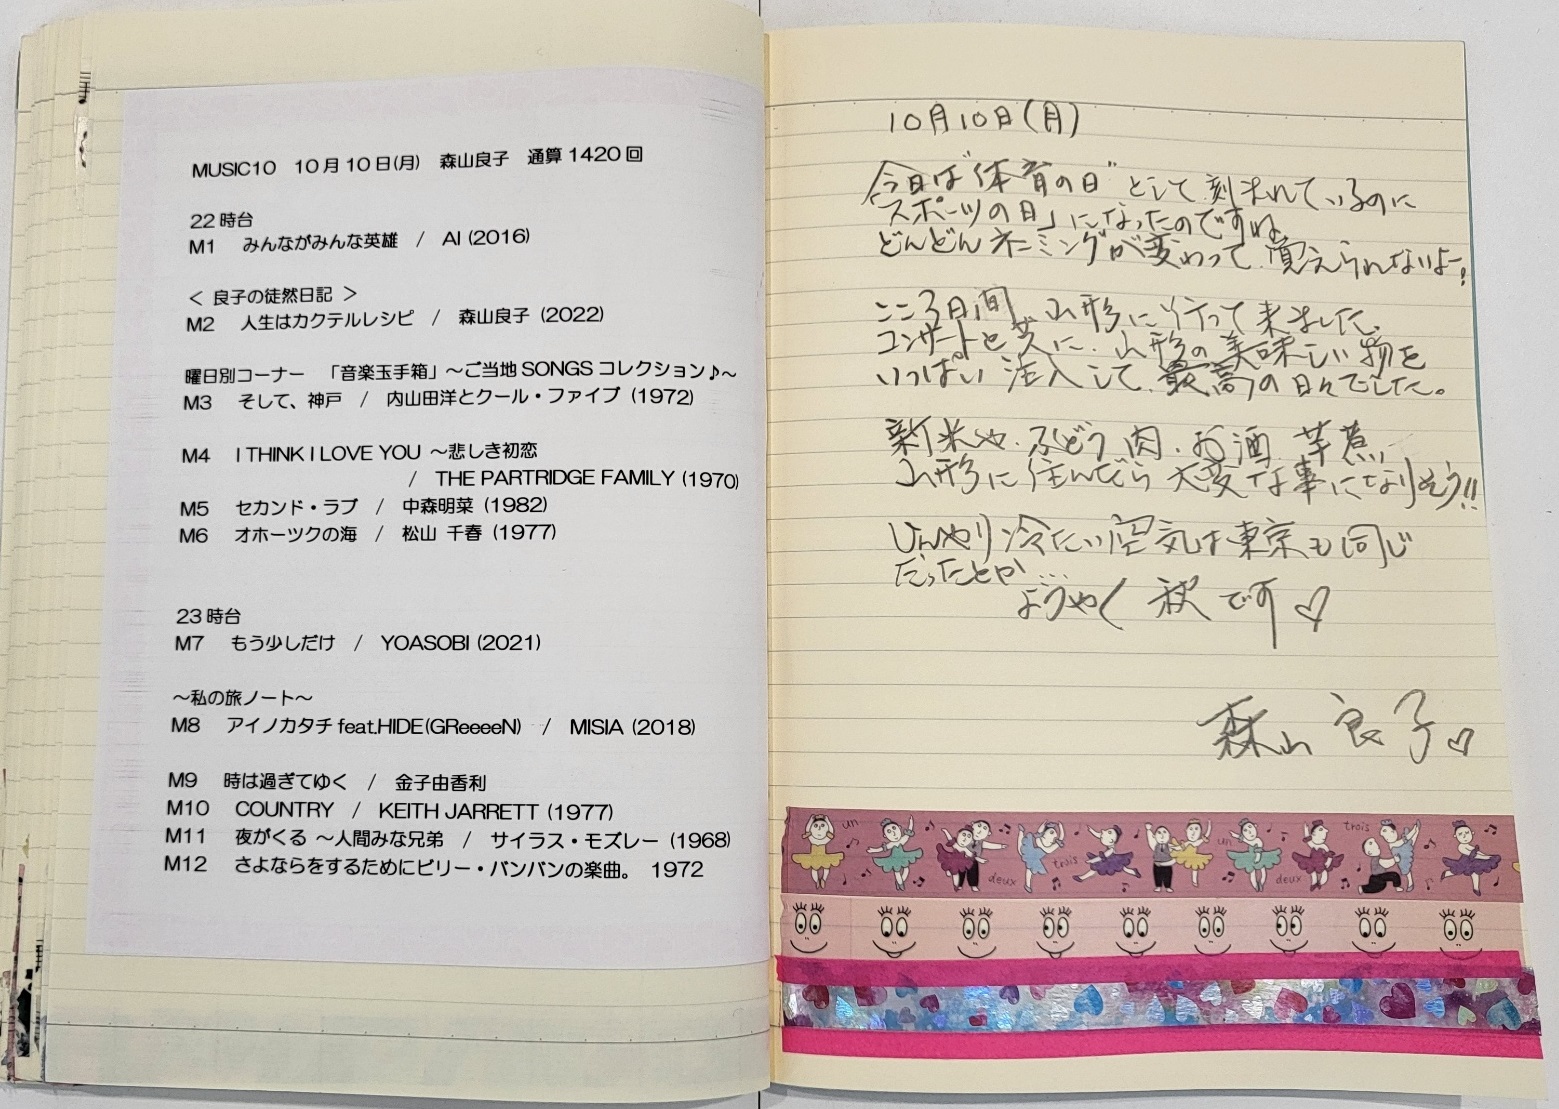 MUSIC10 10月10日(月) 森山良子 通算1420回
22時台
M1 みんながみんな英雄 / AI (2016)
< 良子の徒然日記 >
M2 人生はカクテルレシピ / 森山良子 (2022)
曜日別コーナー 「音楽玉手箱」～ご当地SONGSコレクション♪～
M3 そして、神戸 / 内山田洋とクール・ファイブ (1972)
M4 I THINK I LOVE YOU ～悲しき初恋
/ THE PARTRIDGE FAMILY (1970)
M5 セカンド・ラブ / 中森明菜 (1982)
M6 オホーツクの海 / 松山 千春 (1977)
23時台
M7 もう少しだけ / YOASOBI (2021)
～私の旅ノート～
M8 アイノカタチ feat.HIDE(GReeeeN) / MISIA (2018)
M9 時は過ぎてゆく / 金子由香利
M10 COUNTRY / KEITH JARRETT (1977)
M11 夜がくる ～人間みな兄弟 / サイラス・モズレー (1968)
M12 さよならをするためにビリー・バンバンの楽曲。 1972
10月10日(月)
今日は"体育の日"として刻まれているのに
「スポーツの日」になったのですね
どんどんネーミングが変わって、覚えられないよー!
ここ3日間、山形に行って来ました。
コンサートと共に、山形の美味しい物を
いっぱい注入して、最高の日々でした。
新米や、ぶどう、肉、お酒、芋煮、
山形に住んだら大変な事になりそう!!
ひんやり冷たい空気は東京も同じ
だったとか…
ようやく秋です♡
森山良子♡
un trois deux trois un deux trois